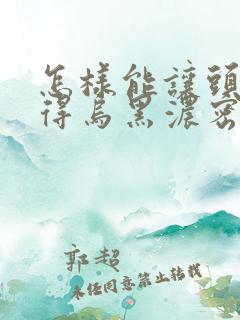 怎樣能讓頭
得烏黑濃密
郭超
未经同意禁止转载